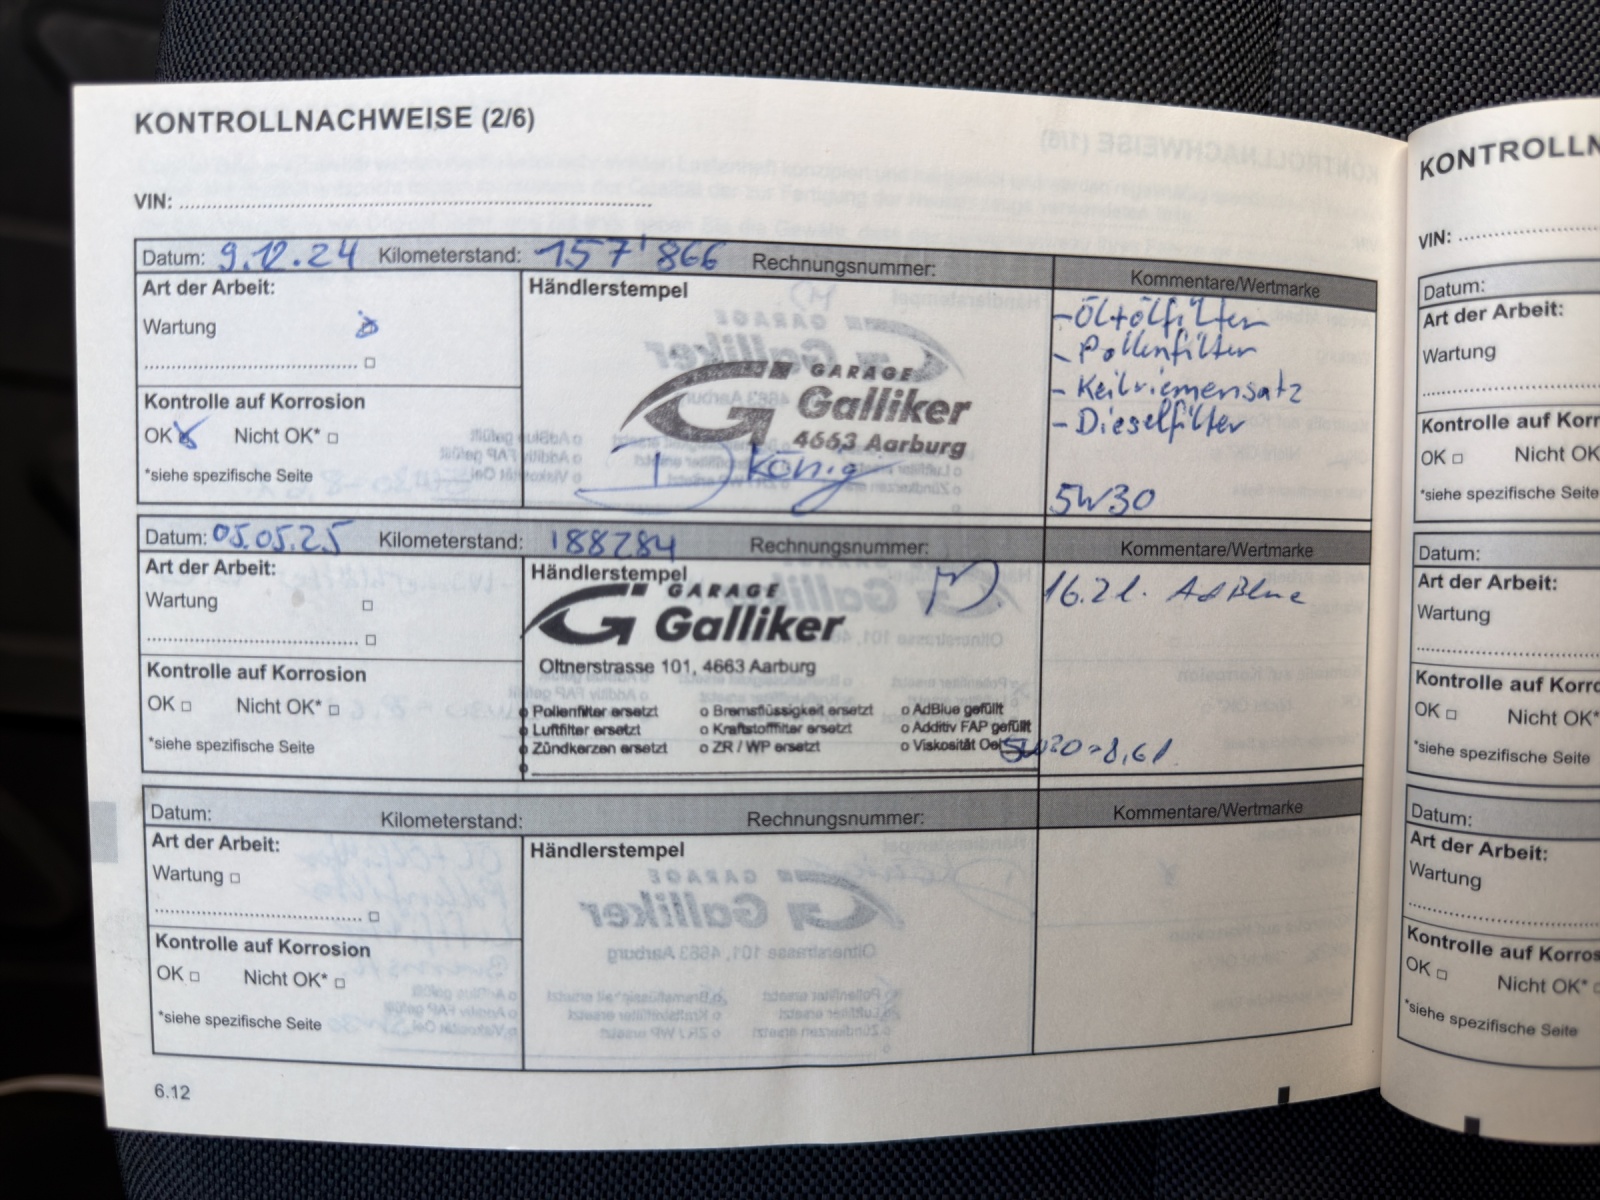 KONTROLLNACHWEISE (2/6)
VIN:
Datum: 9.12.24 Kilometerstand: 157'866 Rechnungsnummer: Kommentare/Wertmarke
Art der Arbeit:
Wartung
Kontrolle auf Korrosion
OK Nicht OK*
*siehe spezifische Seite
Händlerstempel
GARAGE
Galliker
4663 Aarburg
D. König
- Öl+ölfilter
- Pollenfilter
- Keilriemensatz
- Dieselfilter
5W30
Datum: 05.05.25 Kilometerstand: 188284 Rechnungsnummer: Kommentare/Wertmarke
Art der Arbeit:
Wartung
Kontrolle auf Korrosion
OK Nicht OK*
*siehe spezifische Seite
Händlerstempel
GARAGE
Galliker
Oltnerstrasse 101, 4663 Aarburg
Pollenfilter ersetzt Bremsflüssigkeit ersetzt AdBlue gefüllt
Luftfilter ersetzt Kraftstofffilter ersetzt Additiv FAP gefüllt
Zündkerzen ersetzt ZR / WP ersetzt Viskosität Oel 5W30 8,6l
16.2l. AdBlue
Datum: Kilometerstand: Rechnungsnummer: Kommentare/Wertmarke
Art der Arbeit:
Wartung
Kontrolle auf Korrosion
OK Nicht OK*
*siehe spezifische Seite
Händlerstempel
6.12
KONTROLLN
VIN:
Datum:
Art der Arbeit:
Wartung
Kontrolle auf Korro
OK Nicht OK
*siehe spezifische Seite
Datum:
Art der Arbeit:
Wartung
Kontrolle auf Korro
OK Nicht OK*
*siehe spezifische Seite
Datum:
Art der Arbeit:
Wartung
Kontrolle auf Korros
OK Nicht OK*
*siehe spezifische Seite